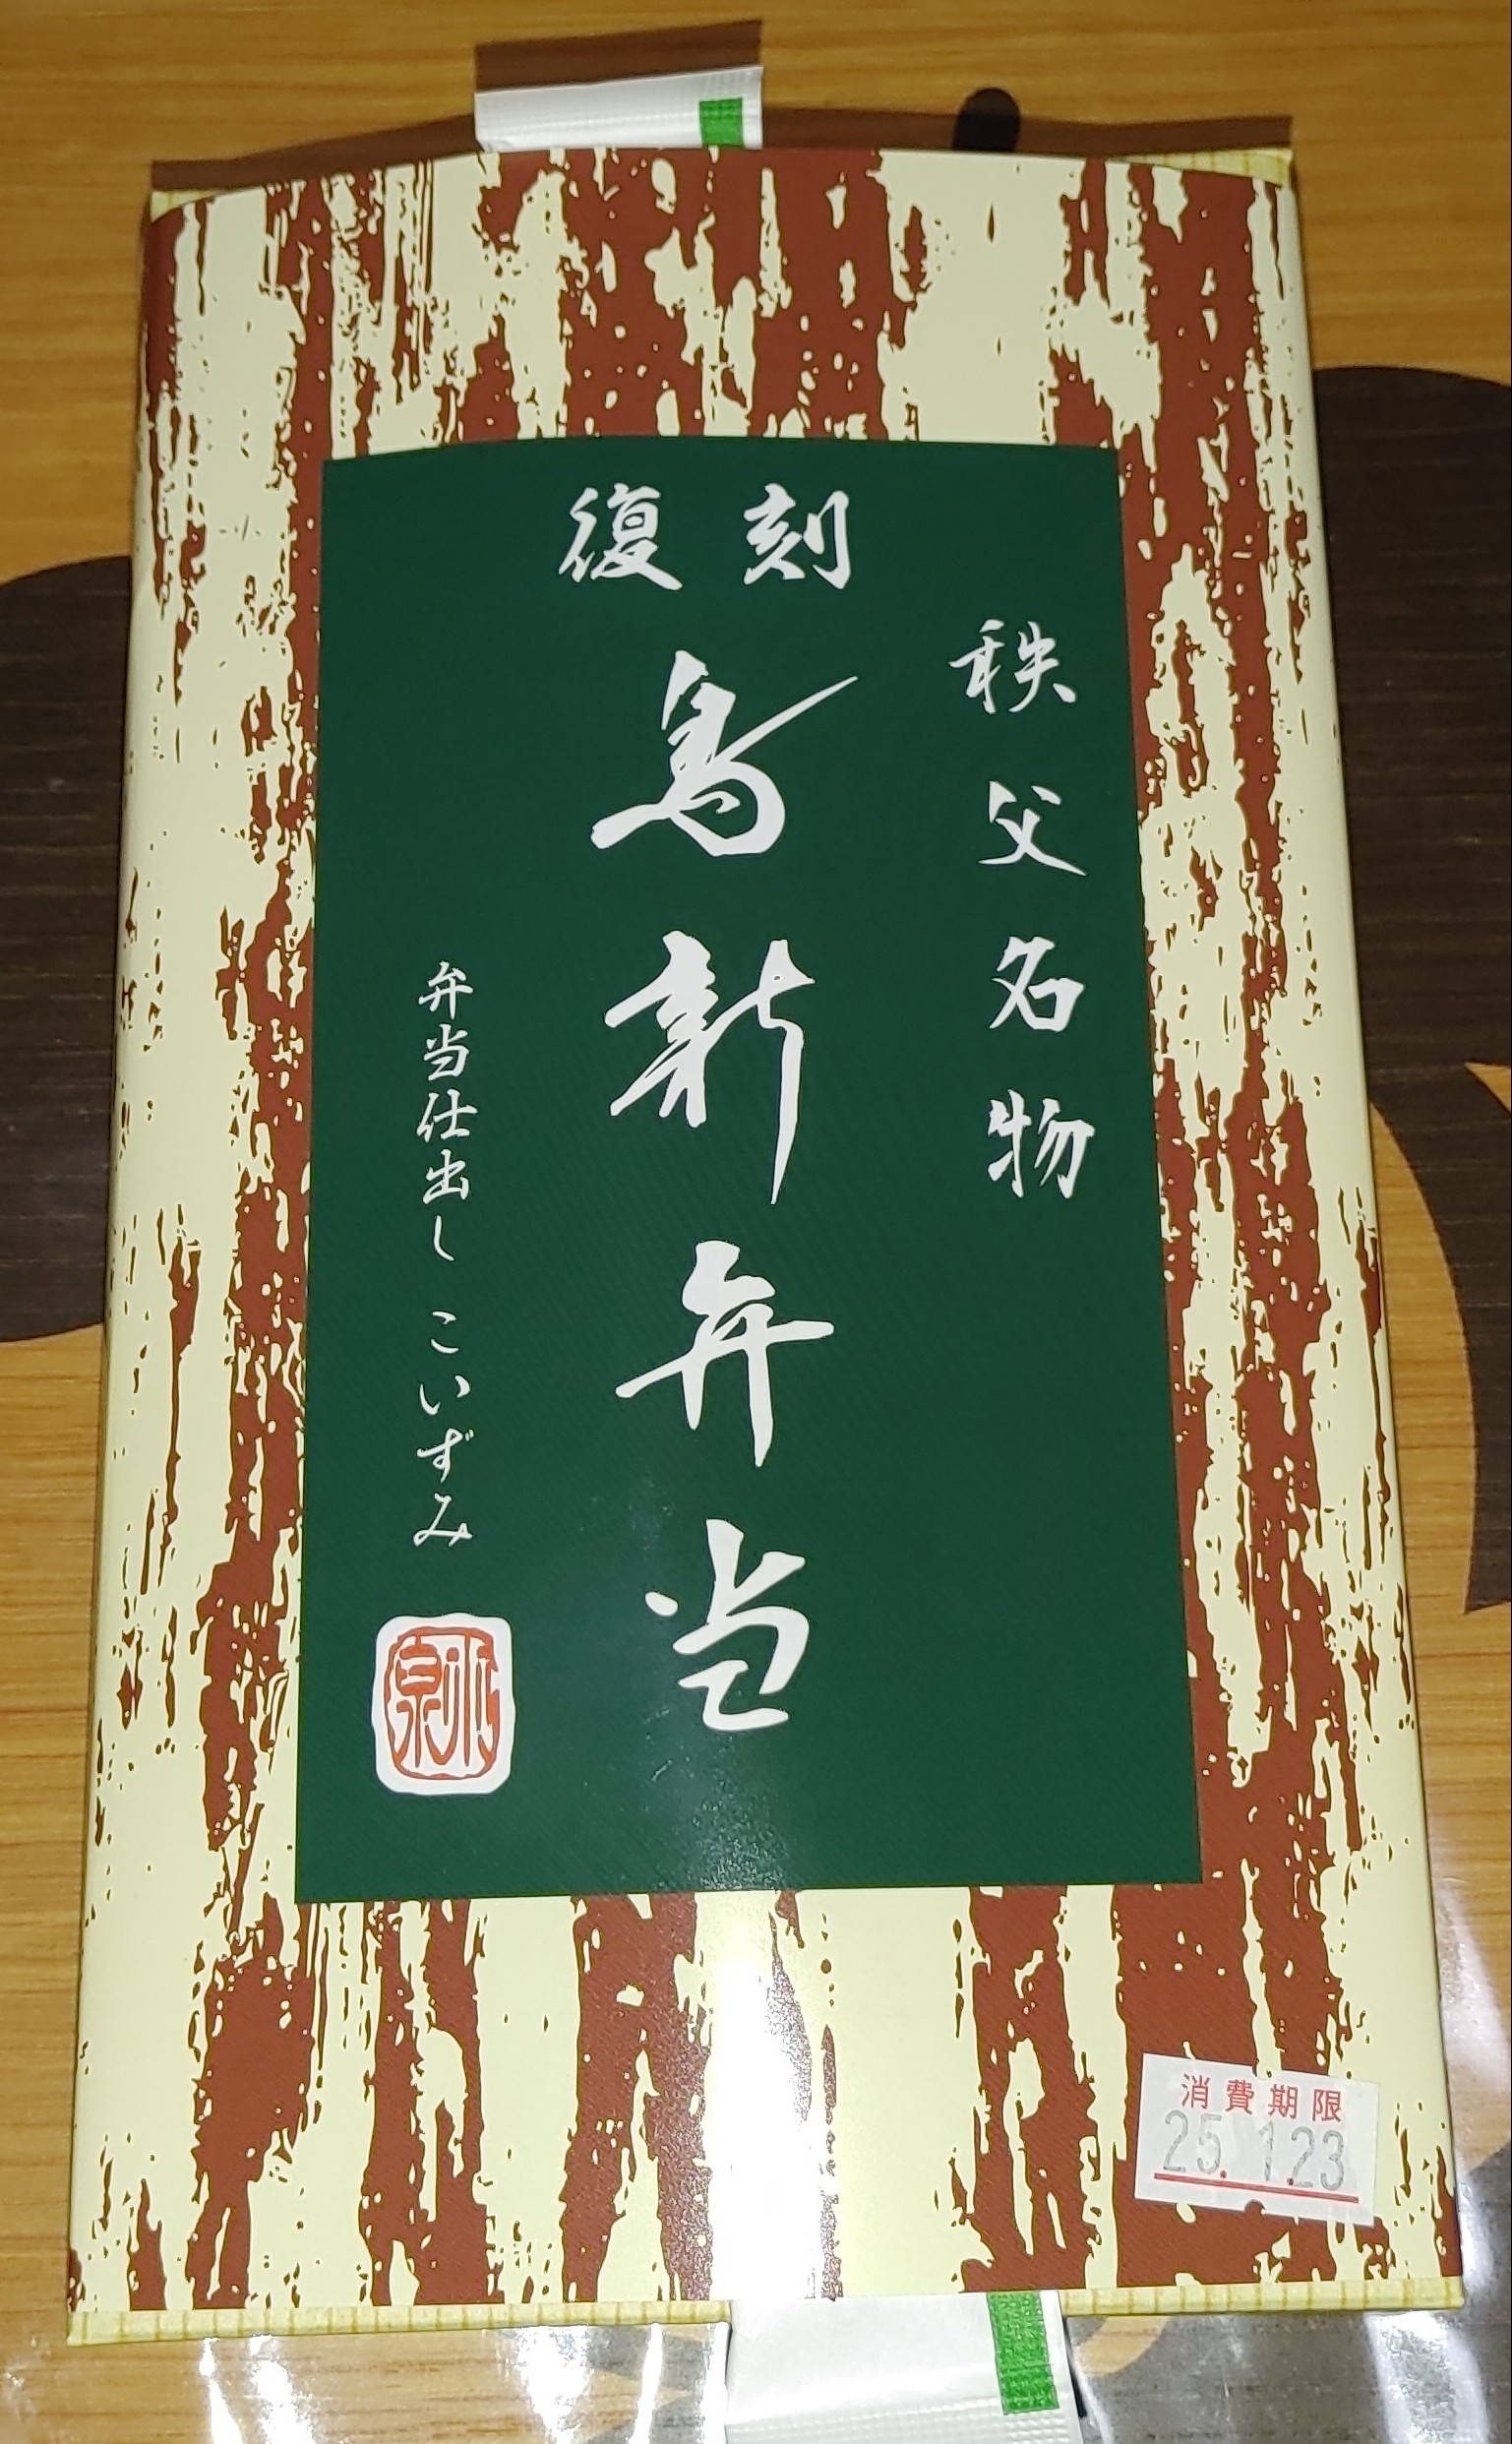 復刻
秩父名物
鳥新弁当
弁当仕出し こいずみ
消費期限
25. 1.23